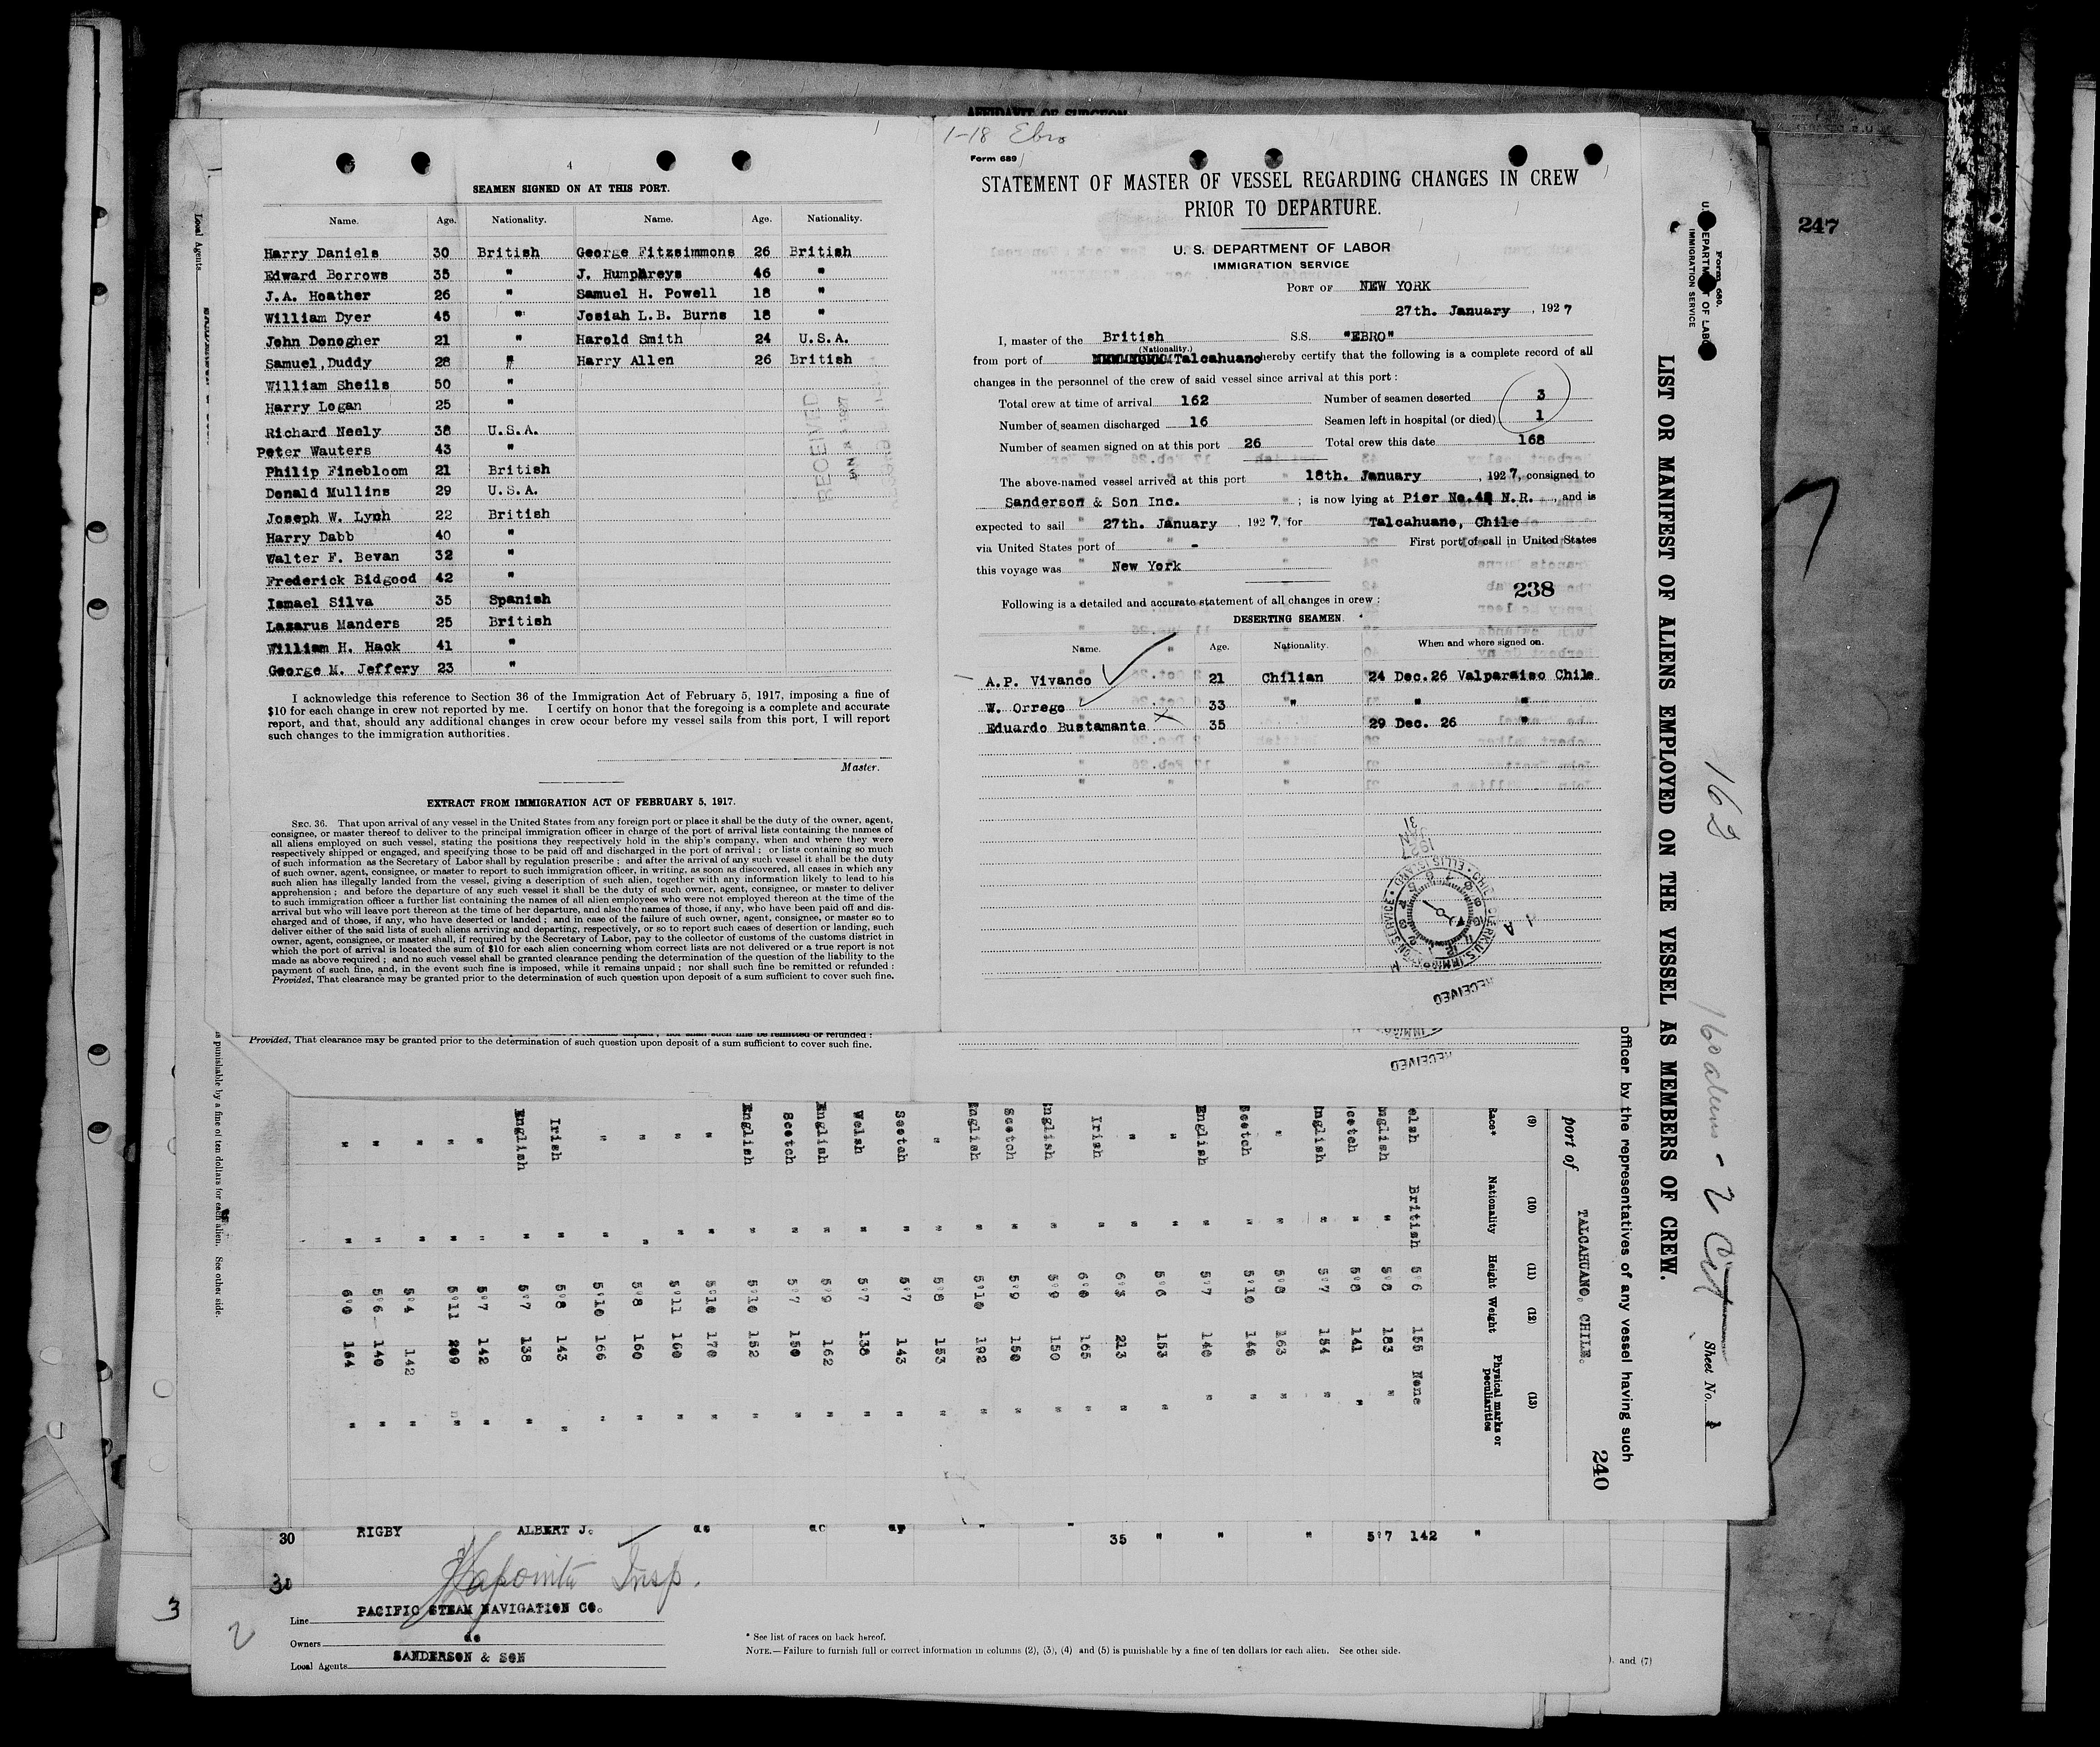 AFFIDAVIT OF SURGEON
4
SEAMEN SIGNED ON AT THIS PORT.
Name. Age. Nationality. Name. Age. Nationality.
Harry Daniels 30 British George Fitzsimmons 26 British
Edward Borrows 35 " J. Humphreys 46 "
J.A. Hoather 26 " Samuel H. Powell 18 "
William Dyer 45 " Josiah L.B. Burns 18 "
John Donogher 21 " Harold Smith 24 U.S.A.
Samuel Duddy 28 " Harry Allen 26 British
William Sheils 50 "
Harry Logan 25 "
Richard Neely 38 U.S.A.
Peter Wauters 43 "
Philip Finebloom 21 British
Donald Mullins 29 U.S.A.
Joseph W. Lynch 22 British
Harry Dabb 40 "
Walter F. Bevan 32 "
Frederick Bidgood 42 "
Ismael Silva 35 Spanish
Lazarus Manders 25 British
William H. Hack 41 "
George M. Jeffery 23 "
RECEIVED
I acknowledge this reference to Section 36 of the Immigration Act of February 5, 1917, imposing a fine of
$10 for each change in crew not reported by me. I certify on honor that the foregoing is a complete and accurate
report, and that, should any additional changes in crew occur before my vessel sails from this port, I will report
such changes to the immigration authorities.
Master.
EXTRACT FROM IMMIGRATION ACT OF FEBRUARY 5, 1917.
SEC. 36. That upon arrival of any vessel in the United States from any foreign port or place it shall be the duty of the owner, agent,
consignee, or master thereof to deliver to the principal immigration officer in charge of the port of arrival lists containing the names of
all aliens employed on such vessel, stating the positions they respectively hold in the ship's company, when and where they were
respectively shipped or engaged, and specifying those to be paid off and discharged in the port of arrival; or lists containing so much
of such information as the Secretary of Labor shall by regulation prescribe; and after the arrival of any such vessel it shall be the duty
of such owner, agent, consignee, or master to report to such immigration officer, in writing, as soon as discovered, all cases in which any
such alien has illegally landed from the vessel, giving a description of such alien, together with any information likely to lead to his
apprehension; and before the departure of any such vessel it shall be the duty of such owner, agent, consignee, or master to deliver
to such immigration officer a further list containing the names of all alien employees who were not employed thereon at the time of the
arrival but who will leave port thereon at the time of her departure, and also the names of those, if any, who have been paid off and dis-
charged and of those, if any, who have deserted or landed; and in case of the failure of such owner, agent, consignee, or master so to
deliver either of the said lists of such aliens arriving and departing, respectively, or so to report such cases of desertion or landing, such
owner, agent, consignee, or master shall, if required by the Secretary of Labor, pay to the collector of customs of the customs district in
which the port of arrival is located the sum of $10 for each alien concerning whom correct lists are not delivered or a true report is not
made as above required; and no such vessel shall be granted clearance pending the determination of the question of the liability to the
payment of such fine, and, in the event such fine is imposed, while it remains unpaid; nor shall such fine be remitted or refunded:
Provided, That clearance may be granted prior to the determination of such question upon deposit of a sum sufficient to cover such fine.
1-18 Ebro
Form 689
STATEMENT OF MASTER OF VESSEL REGARDING CHANGES IN CREW
PRIOR TO DEPARTURE.
U. S. DEPARTMENT OF LABOR
IMMIGRATION SERVICE
PORT OF NEW YORK
27th. January, 1927
I, master of the British S.S. "EBRO"
(Nationality.)
from port of Talcahuano hereby certify that the following is a complete record of all
changes in the personnel of the crew of said vessel since arrival at this port:
Total crew at time of arrival 162 Number of seamen deserted 3
Number of seamen discharged 16 Seamen left in hospital (or died) 1
Number of seamen signed on at this port 26 Total crew this date 168
The above-named vessel arrived at this port 18th. January, 1927, consigned to
Sanderson & Son Inc. ; is now lying at Pier No.42 N.R. and is
expected to sail 27th. January, 1927, for Talcahuano, Chile
via United States port of - First port of call in United States
this voyage was New York
238
Following is a detailed and accurate statement of all changes in crew:
DESERTING SEAMEN.
Name. Age. Nationality. When and where signed on.
A.P. Vivanco 21 Chilian 24 Dec.26 Valparaiso Chile
W. Orrego 33 " " "
Eduardo Bustamante 35 29 Dec. 26 "
JAN 31 1927
RECEIVED
Provided, That clearance may be granted prior to the determination of such question upon deposit of a sum sufficient to cover such fine.
RECEIVED
247
Form 680.
U. S. DEPARTMENT OF LABOR
IMMIGRATION SERVICE
LIST OR MANIFEST OF ALIENS EMPLOYED ON THE VESSEL AS MEMBERS OF CREW.
162
160 aliens - 2 Cit
Sheet No. 1
officer by the representatives of any vessel having such
port of TALCAHUANO, CHILE.
240
(9) (10) (11) (12) (13)
Race* Nationality Height Weight Physical marks or peculiarities
elsh British 5'6 155 None
nglish " 5'8 183 "
cotch " 5'8 141 "
nglish " 5'7 154 "
" " 5'8 163 "
Scotch " 5'10 146 "
English " 5'7 140 "
" " 5'6 153 "
" " 6'3 213 "
Irish " 6'0 165 "
nglish " 5'9 150 "
Scotch " 5'9 150 "
English " 5'10 192 "
" " 5'8 153 "
Scotch " 5'7 143 "
Welsh " 5'7 138 "
English " 5'9 162 "
Scotch " 5'7 150 "
English " 5'10 152 "
" " 5'10 170 "
" " 5'11 160 "
" " 5'8 160 "
" " 5'10 166 "
Irish " 5'8 143 "
English " 5'7 138 "
" " 5'7 142 "
" " 5'11 209 "
" " 5'4 142 "
" " 5'6 140 "
" " 6'0 164 "
Local Agents
is punishable by a fine of ten dollars for each alien. See other side.
30 RIGBY ALBERT J. do do 35 " " " 5'7 142 "
30
Insp.
3
2
Line PACIFIC STEAM NAVIGATION CO.
Owners do
Local Agents SANDERSON & SON
* See list of races on back hereof.
NOTE.—Failure to furnish full or correct information in columns (2), (3), (4) and (5) is punishable by a fine of ten dollars for each alien. See other side.
). and (7)